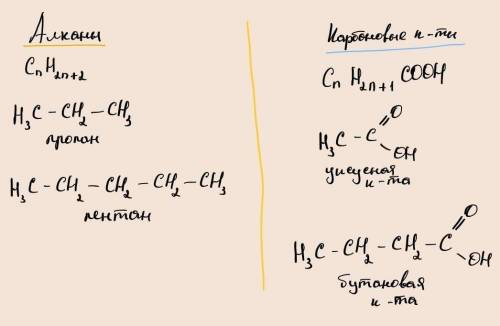 Алканы
CnH2n+2
H3C - CH2 - CH3
пропан
H3C - CH2 - CH2 - CH2 - CH3
пентан
Карбоновые к-ты
CnH2n+1COOH
O
H3C - C
OH
уксусная
к-та
O
H3C - CH2 - CH2 - C
OH
бутановая
к-та